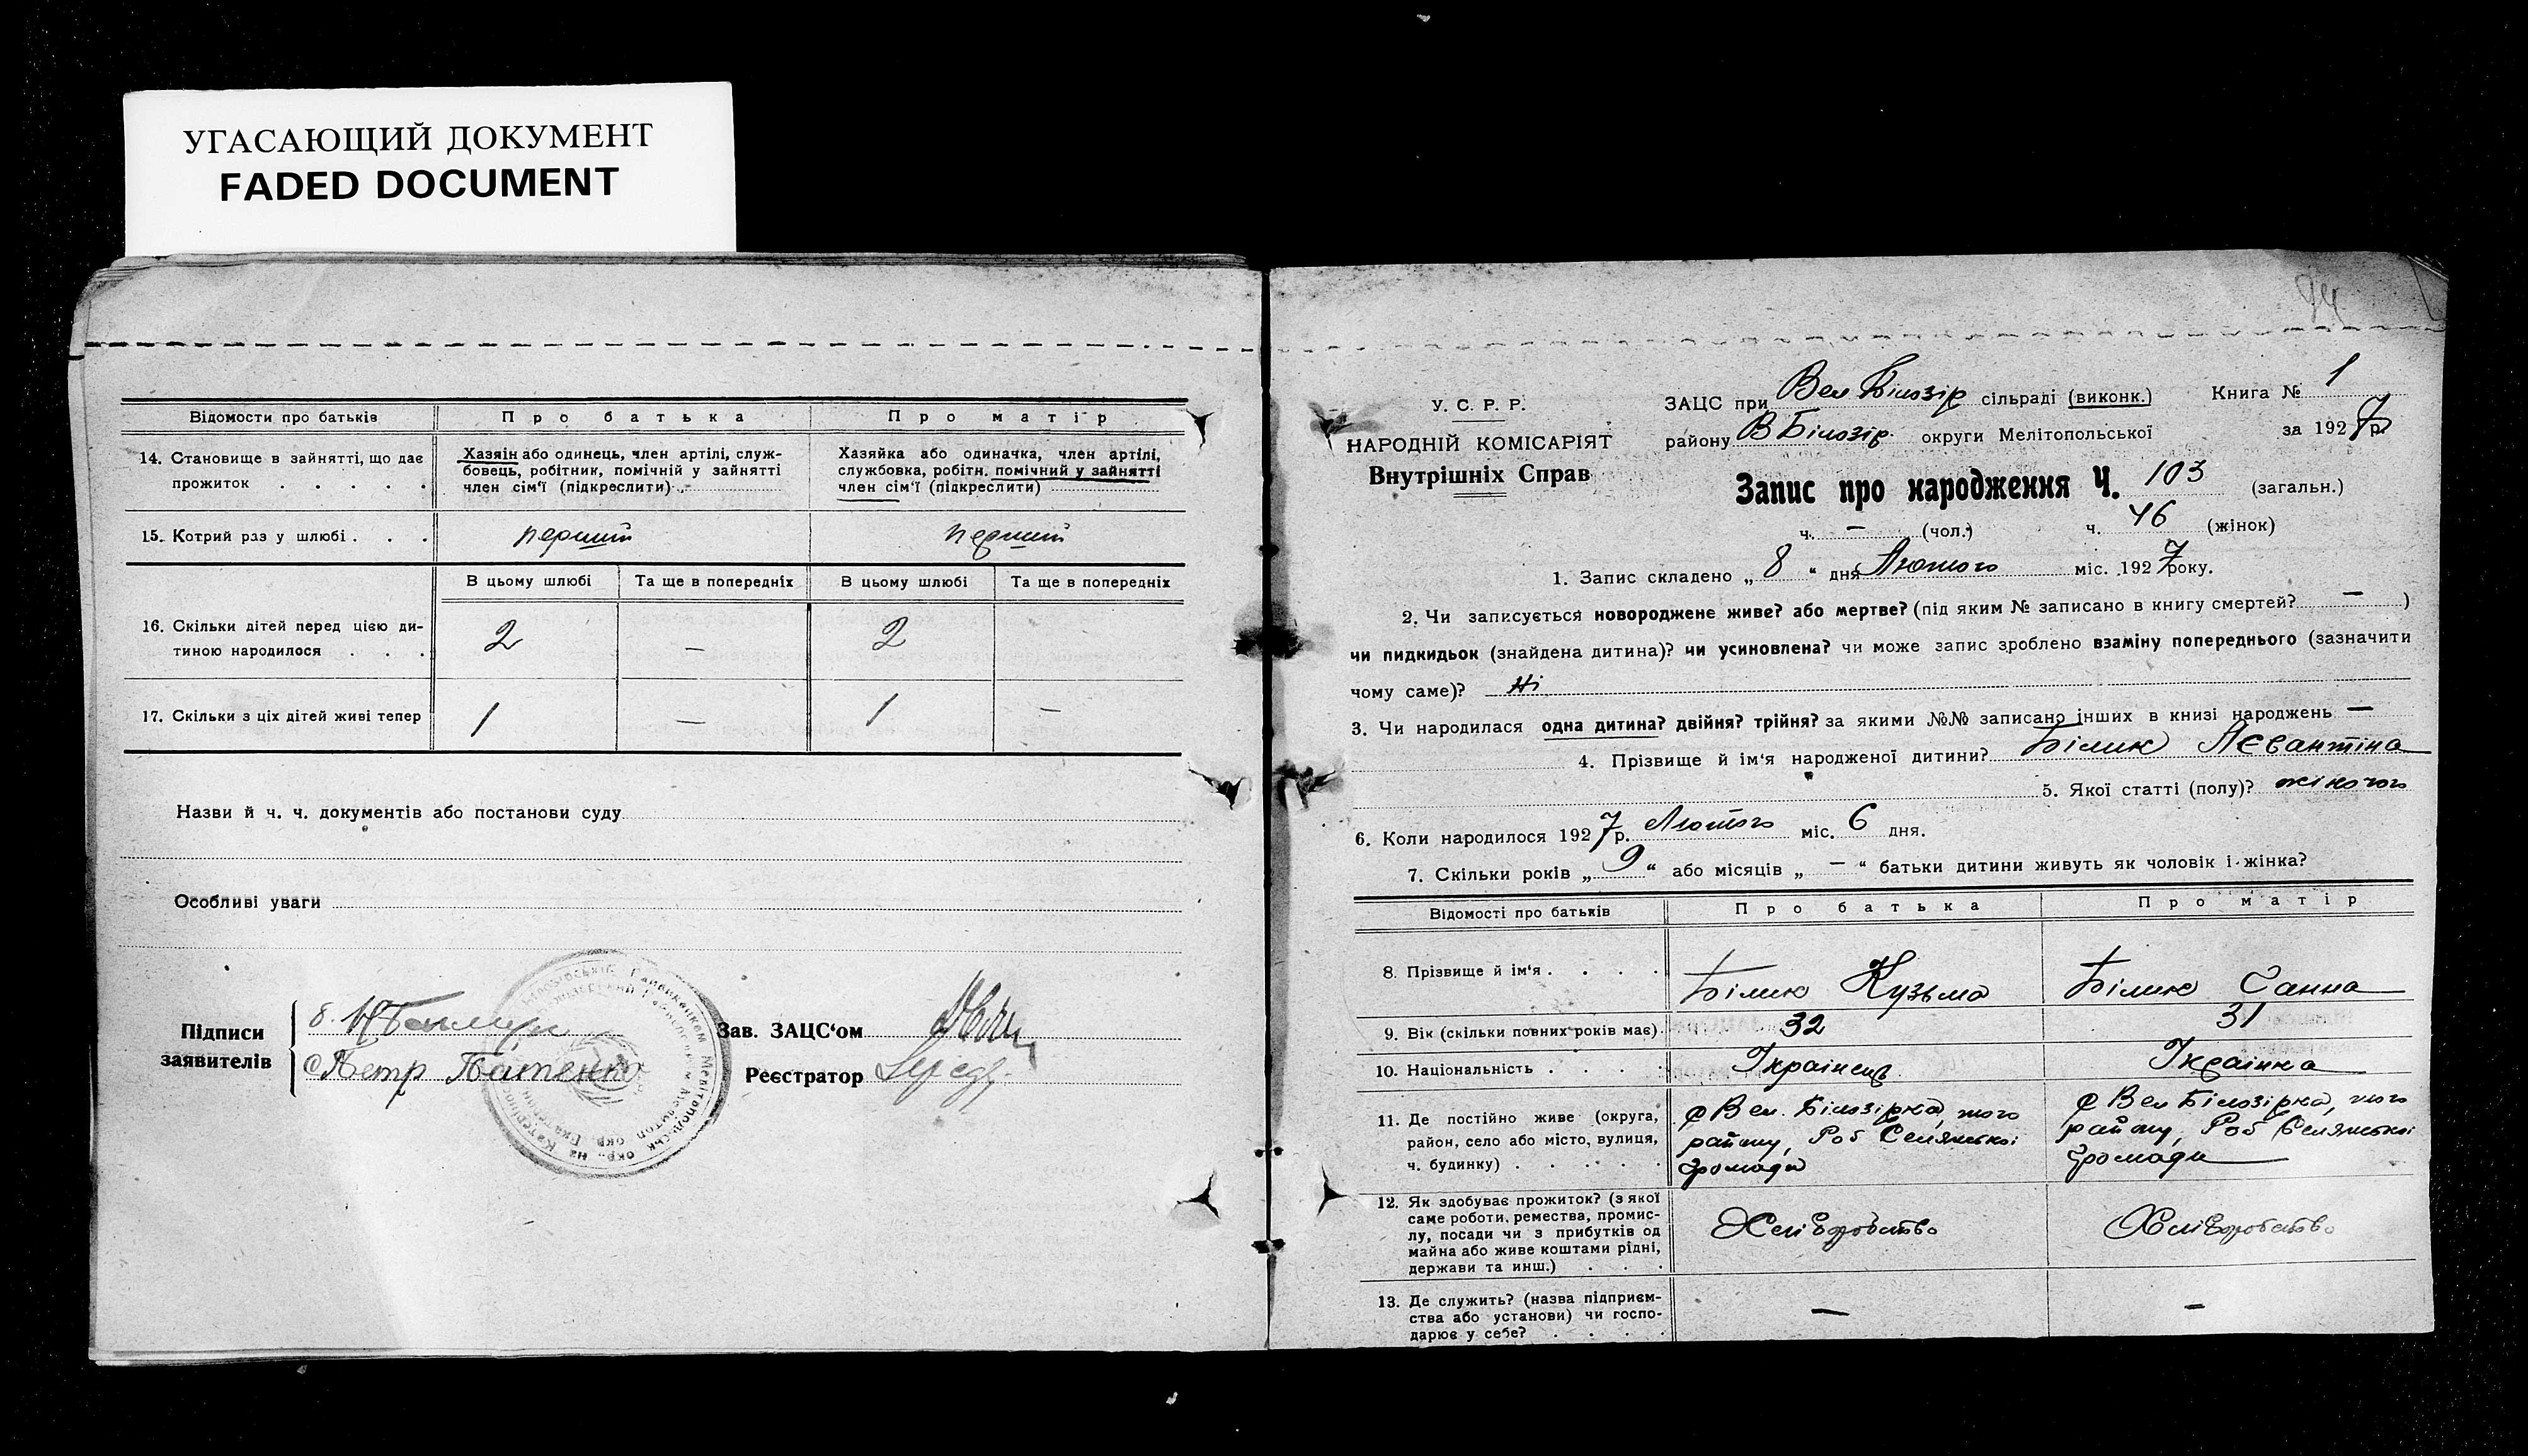 УГАСАЮЩИЙ ДОКУМЕНТ
FADED DOCUMENT
Відомости про батьків
Про батька
Про матір
14. Становище в зайнятті, що дає прожиток . . . . .
Хазяін або одинець, член артілі, служ-
бовець, робітник, помічній у зайнятті
член сім'ї (підкреслити)
Хазяйка або одиначка, член артілі,
службовка, робітн. помічний у зайнятті
член сім'ї (підкреслити)
15. Котрий раз у шлюбі . . .
перший
перший
В цьому шлюбі
Та ще в попередніх
В цьому шлюбі
Та ще в попередніх
16. Скільки дітей перед цією ди-
тиною народилося . . .
2 — 2
17. Скільки з ціх дітей живі тепер
1 — 1 —
Назви й ч. ч. документів або постанови суду
Особливі уваги
Підписи
заявителів
Петр
Зав. ЗАЦС'ом
Реєстратор
94
У. С. Р. Р.
НАРОДНІЙ КОМІСАРІЯТ
Внутрішніх Справ
ЗАЦС при Вел Білозір сільраді (виконк.) Книга № 1
району В Білозір. округи Мелітопольської за 1927 р.
Запис про народження Ч. 103 (загальн.)
ч. — (чол.) ч. 46 (жінок)
1. Запис складено „ 8 “ дня Лютого міс. 1927 року.
2. Чи записується новороджене живе? або мертве? (під яким № записано в книгу смертей? — )
чи пидкидьок (знайдена дитина)? чи усиновлена? чи може запис зроблено взаміну попереднього (зазначити
чому саме)? Ні
3. Чи народилася одна дитина? двійня? трійня? за якими №№ записано інших в книзі народжень —
4. Прізвище й ім'я народженої дитини? Білик Левантіна
5. Якої статті (полу)? жіночого
6. Коли народилося 1927 р. Лютого міс. 6 дня.
7. Скільки років „ 9 “ або місяців „ — “ батьки дитини живуть як чоловік і жінка?
Відомості про батьків
Про батька
Про матір
8. Прізвище й ім'я . . . .
Білик Кузьма
Білик Ганна
9. Вік (скільки повних років має)
32
31
10. Національність . . . .
Українець
Українка
11. Де постійно живе (округа,
район, село або місто, вулиця,
ч. будинку) . . . . .
с Вел. Білозірка, того
району, Роб Селянської
громади
с Вел Білозірка, того
району, Роб Селянської
громади
12. Як здобуває прожиток? (з якої
саме роботи, ремества, промис-
лу, посади чи з прибутків од
майна або живе коштами рідні,
держави та инш.) . . .
Хліборобство
Хліборобство
13. Де служить? (назва підприєм-
ства або установи) чи госпо-
дарює у себе? . . . .
—
—